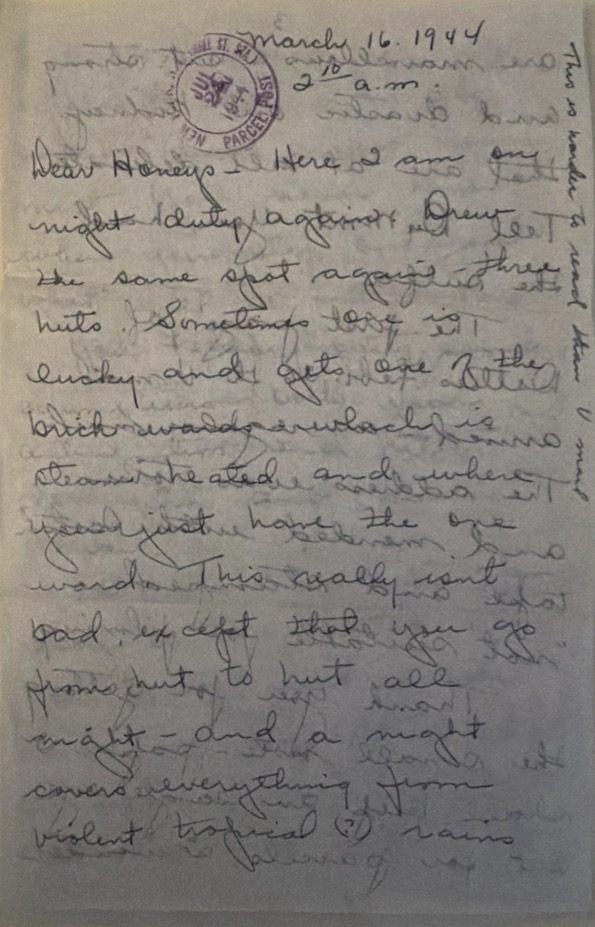 March 16. 1944
2 10 a.m.
Dear Honeys - Here I am on
night duty again. Drew
the same spot again - three
huts. Sometimes one is
lucky and gets one of the
brick wards which is
steam heated and where
you just have the one
ward. This really isn't
bad, except that you go
from hut to hut all
night - and a night
covers everything from
violent tropical (?) rains
This is harder to read than V mail
PARCEL POST
JUL
1944